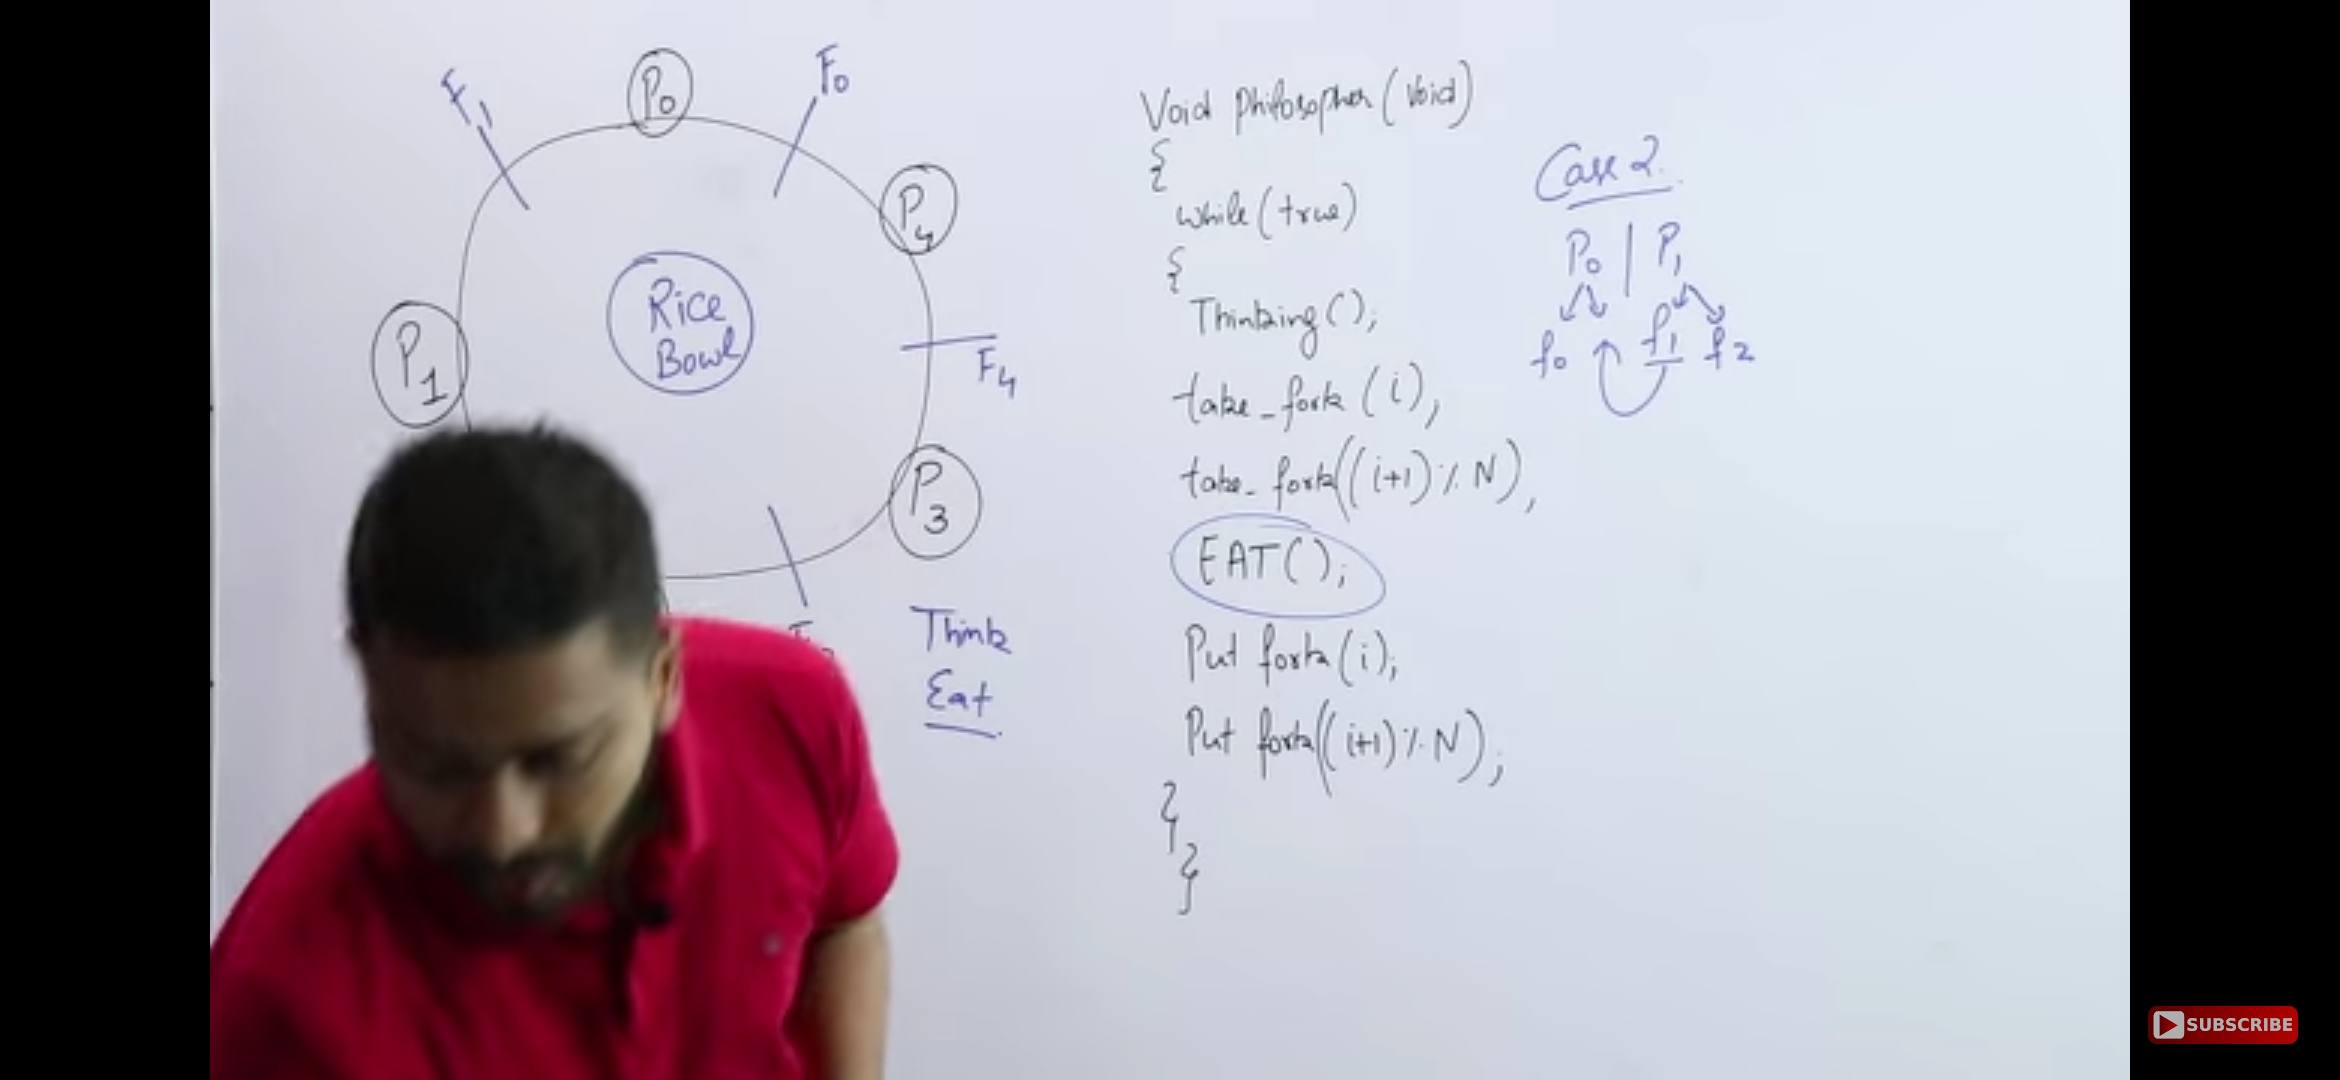 F1
P0
F0
P4
Rice
Bowl
P1
F4
P3
Think
Eat
Void philosopher (Void)
{
while (true)
{
Thinking ();
take_fork (i);
take_fork ((i+1) % N);
EAT ();
Put fork (i);
Put fork ((i+1) % N);
}
}
Case 2.
P0 | P1
f0 f1 f2
SUBSCRIBE